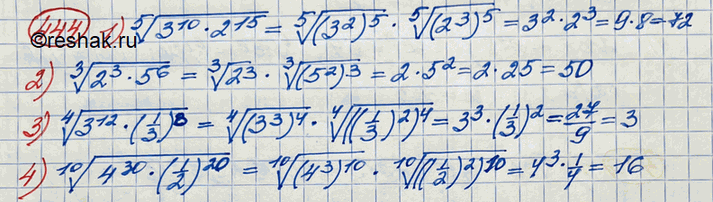 444 1) ⁵√(3¹⁰ · 2¹⁵) = ⁵√((3²)⁵) · ⁵√((2³)⁵) = 3² · 2³ = 9 · 8 = 72
©reshak.ru
2) ³√(2³ · 5⁶) = ³√(2³) · ³√((5²)³) = 2 · 5² = 2 · 25 = 50
3) ⁴√(3¹² · (1/3)⁸) = ⁴√((3³)⁴) · ⁴√(((1/3)²)⁴) = 3³ · (1/3)² = 27/9 = 3
4) ¹⁰√(4³⁰ · (1/2)²⁰) = ¹⁰√((4³)¹⁰) · ¹⁰√(((1/2)²)¹⁰) = 4³ · 1/4 = 16